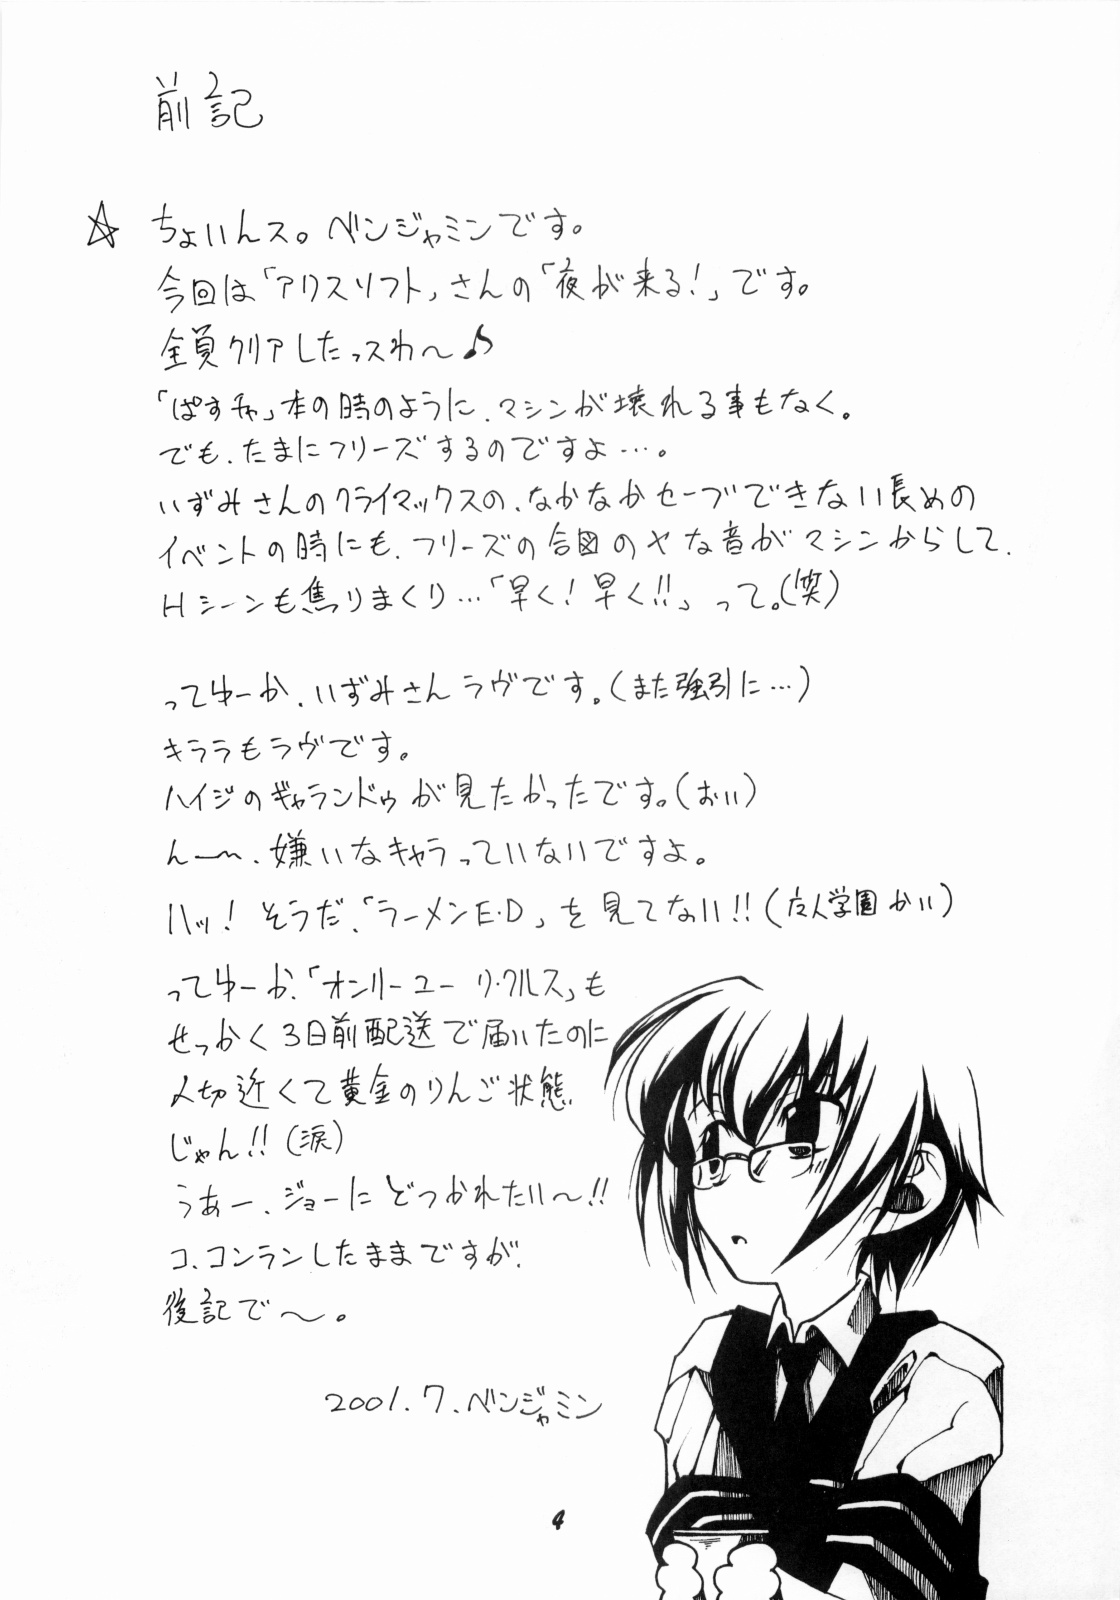 前記
☆ ちょいんス。ベンジャミンです。
今回は「アリスソフト」さんの「夜が来る!」です。
全員クリアしたっスわ〜♪
「ぱすチャ」本の時のように、マシンが壊れる事もなく。
でも、たまにフリーズするのですよ…。
いずみさんのクライマックスの、なかなかセーブできない長めの
イベントの時にも、フリーズの合図のヤな音がマシンからして、
Hシーンも焦りまくり…「早く!早く!!」って。(笑)
ってゆーか、いずみさんラヴです。(また強引に…)
キララもラヴです。
ハイジのギャランドゥが見たかったです。(おいι)
んー〜、嫌いなキャラっていないですよ。
ハッ! そうだ、「ラーメンE・D」を見てないι!!(広人学園かいι)
ってゆーか、「オンリーユー リ・クルス」も
せっかく3日前配送で届いたのに
〆切近くて黄金のりんご状態
じゃん!!(涙)
うあー、ジョーにどつかれたいι〜!!
コ、コンランしたままですが、
後記で〜。
2001.7.ベンジャミン
4